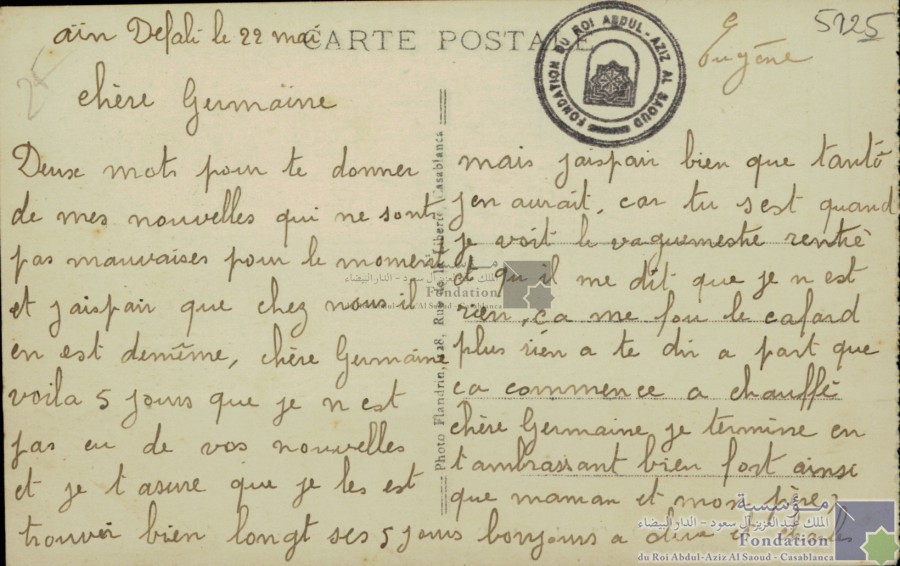 aïn Defali le 22 mai
CARTE POSTALE
FONDATION DU ROI ABDUL-AZIZ AL SAOUD
Eugène
5125
25
chère Germaine
Deux mots pour te donner
de mes nouvelles qui ne sont
pas mauvaises pour le moment
et jaispair que chez nous il
en est demême, chère Germaine
voila 5 jours que je n est
pas eu de vos nouvelles
et je t'asure que je les est
trouver bien longt ses 5 jours bonjours a
Photo Flandrin, 128, Rue de la Liberté, Casablanca
mais jaispair bien que tantô
j en aurait, car tu sest quand
je voit le vaguemestre rentrè
et qu il me dit que je n est
rien, ça me fou le cafard
plus rien a te dir a part que
ca commence a chauffé
chère Germaine je termine en
t'ambrassant bien fort ainsi
que maman et mon père,
مؤسسة
الملك عبد العزيز آل سعود - الدار البيضاء
Fondation
du Roi Abdul-Aziz Al Saoud - Casablanca
مؤسسة
الملك عبد العزيز آل سعود - الدار البيضاء
Fondation
du Roi Abdul-Aziz Al Saoud - Casablanca